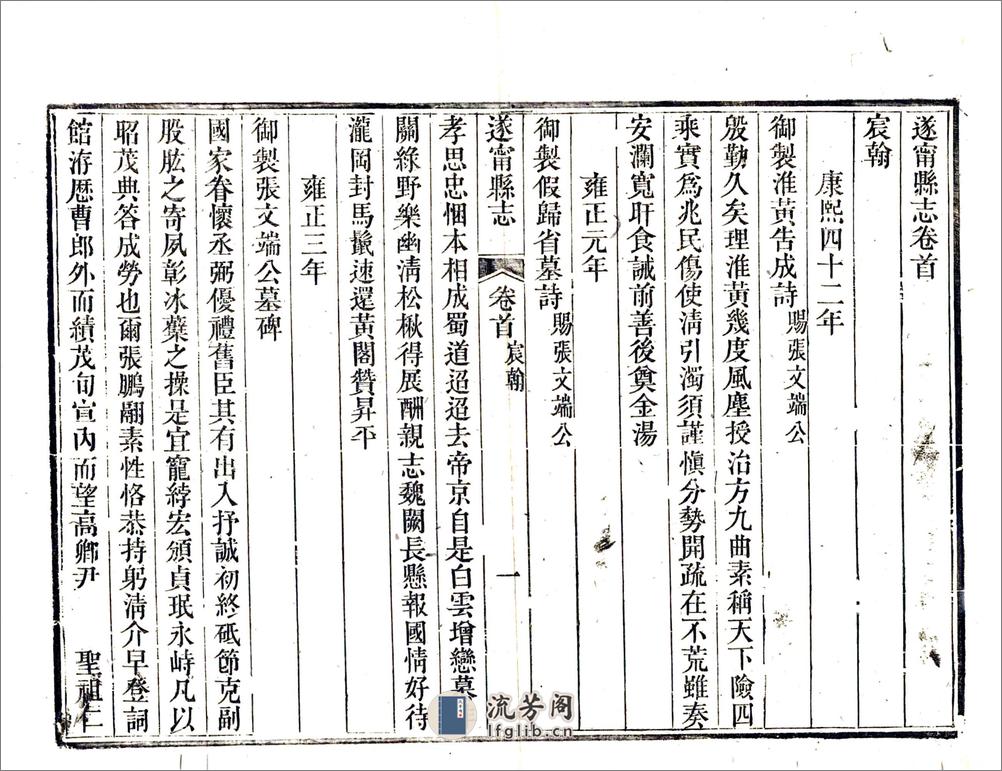 遂甯縣志卷首
宸翰
康熙四十二年
御製淮黃告成詩 賜張文端公
殷勤久矣理淮黃幾度風塵授治方九曲素稱天下險四
乘實爲兆民傷使淸引濁須謹愼分勢開疏在不荒雖奏
安瀾寬旰食誡前善後奠金湯
雍正元年
御製假歸省墓詩 賜張文端公
遂甯縣志 卷首 宸翰 一
孝思忠悃本相成蜀道迢迢去帝京自是白雲增戀慕
關綠野樂幽淸松楸得展酬親志魏闕長懸報國情好待
瀧岡封馬鬛速還黃閣贊昇平
雍正三年
御製張文端公墓碑
國家眷懷丞弼優禮舊臣其有出入抒誠初終砥節克副
股肱之寄夙彰冰蘗之操是宜寵綍宏頒貞珉永峙凡以
昭茂典答成勞也爾張鵬翮素性恪恭持躬淸介早登詞
館洊歷曹郎外而績茂旬宣內而望高卿尹 聖祖仁
流芳阁
lfglib.cn